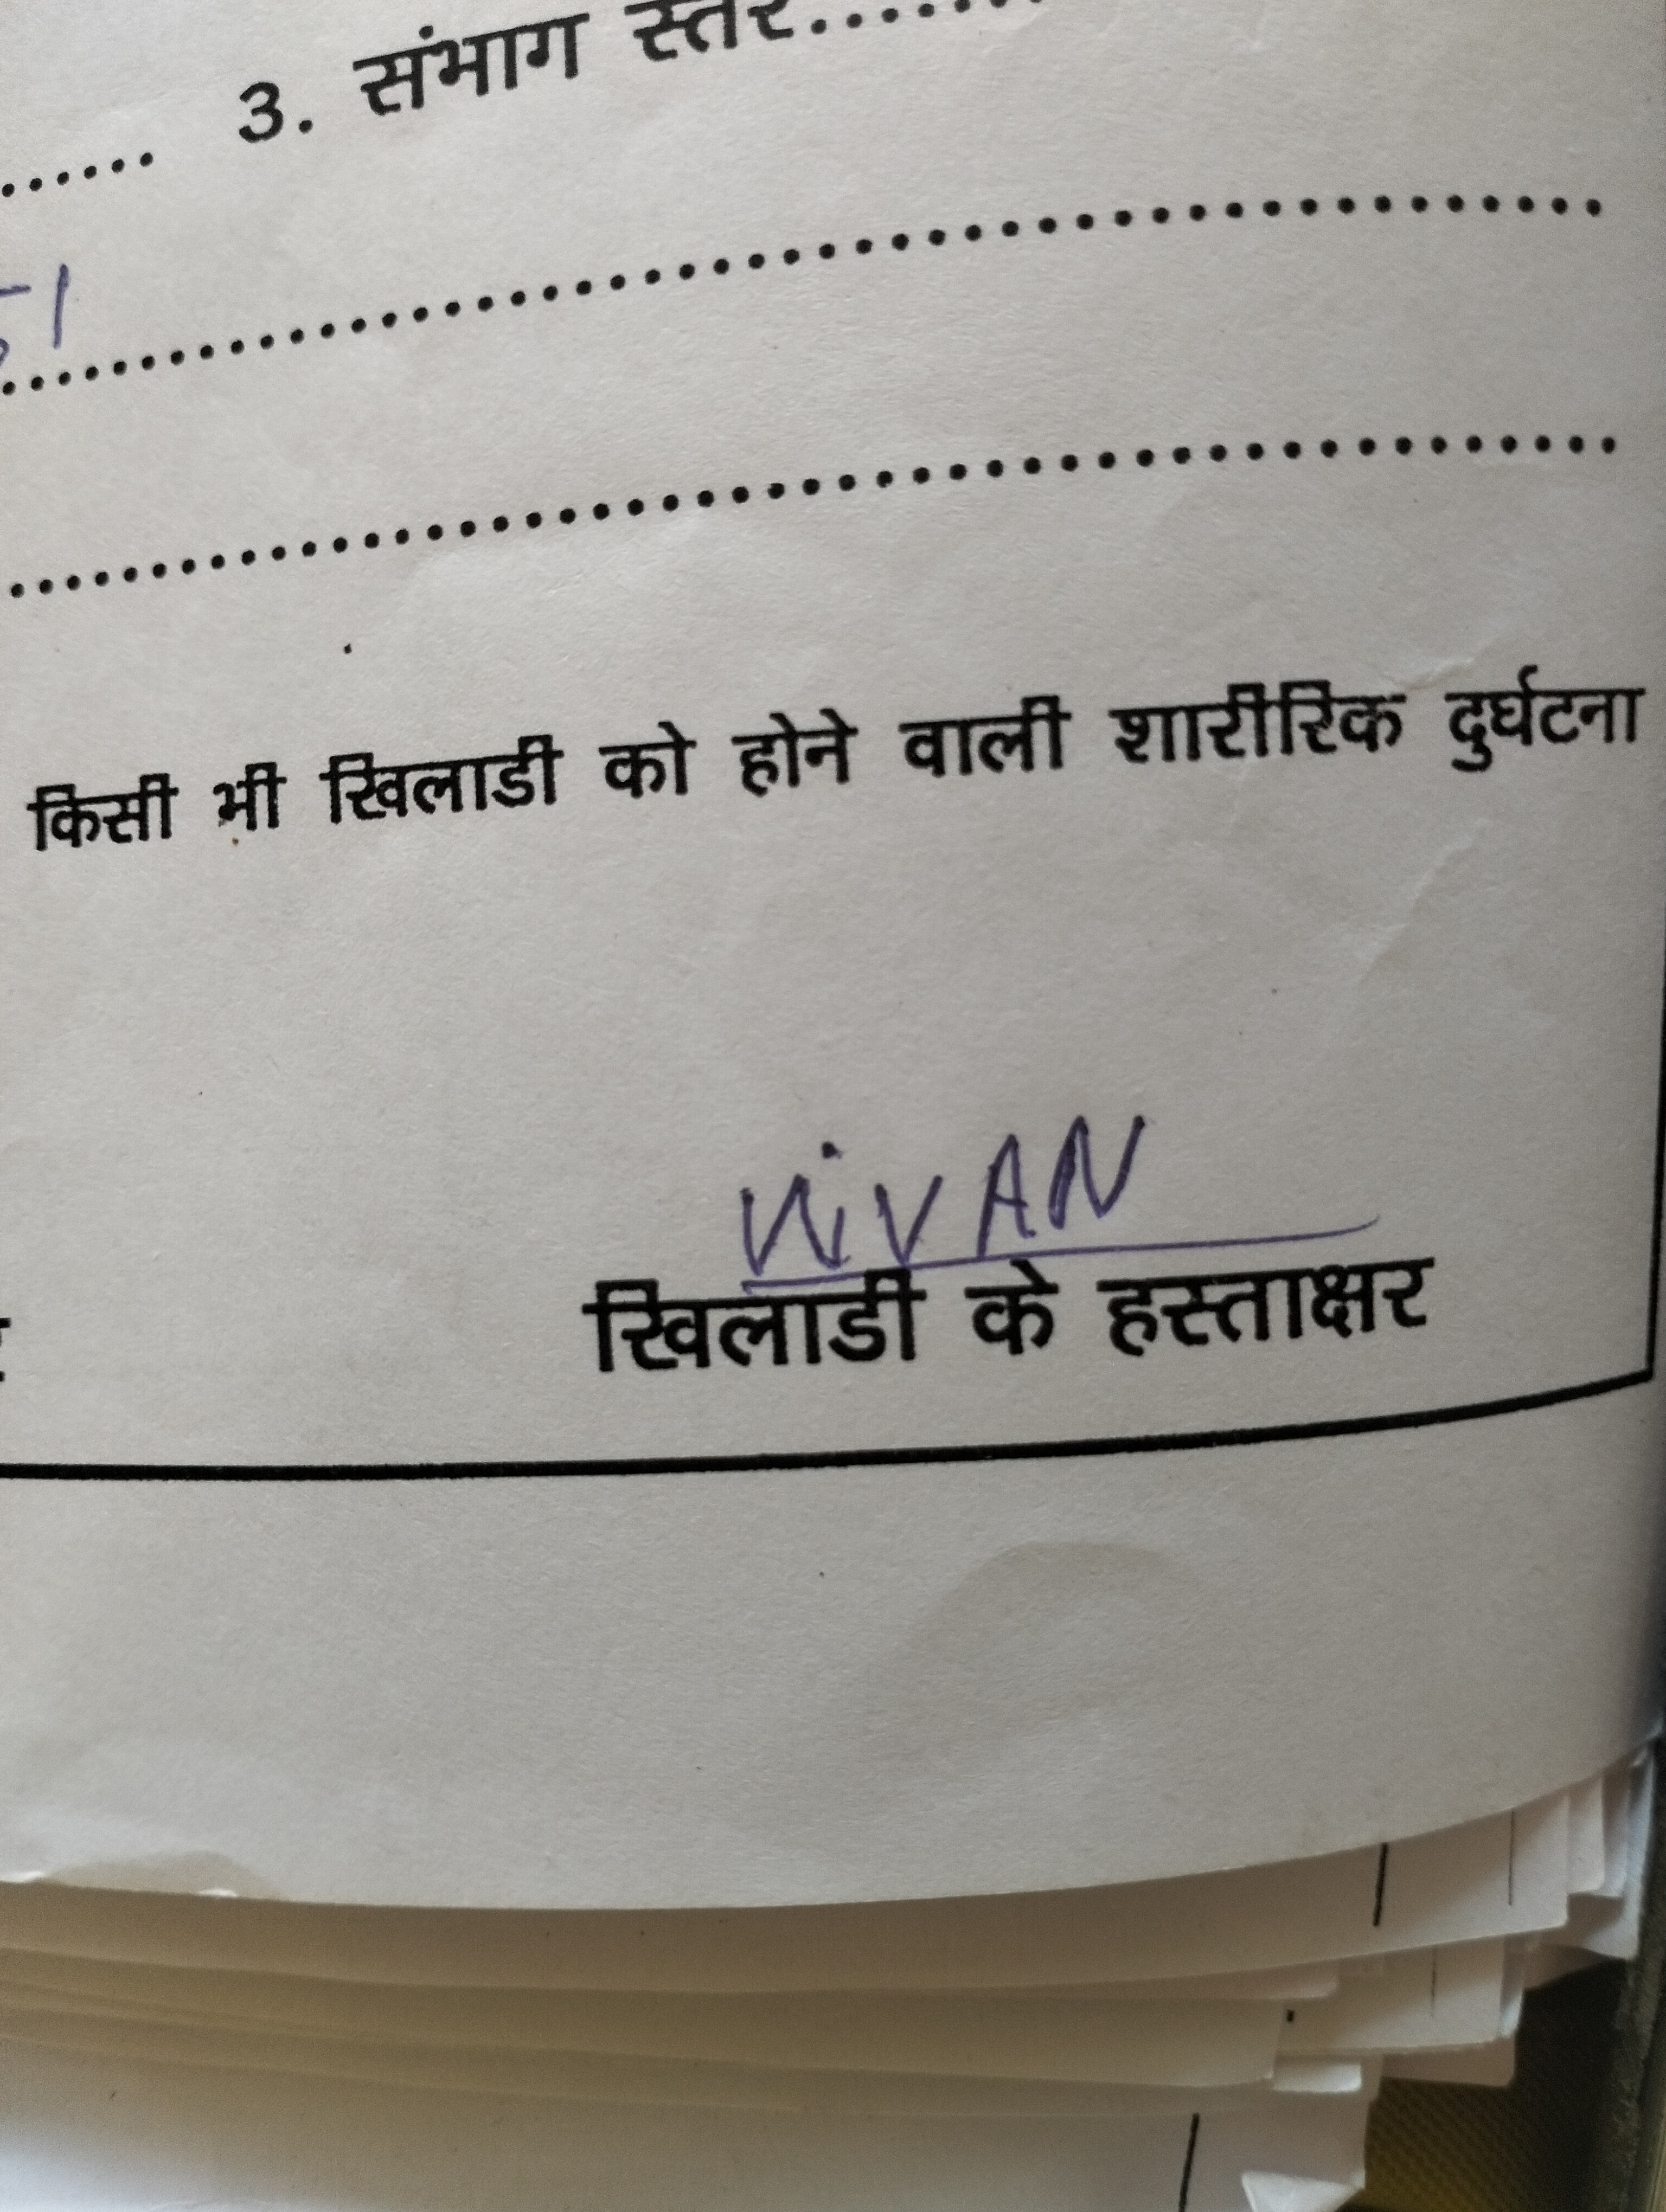 3. संभाग स्तर........
51
किसी भी खिलाडी को होने वाली शारीरिक दुर्घटना
ViVAN
खिलाडी के हस्ताक्षर